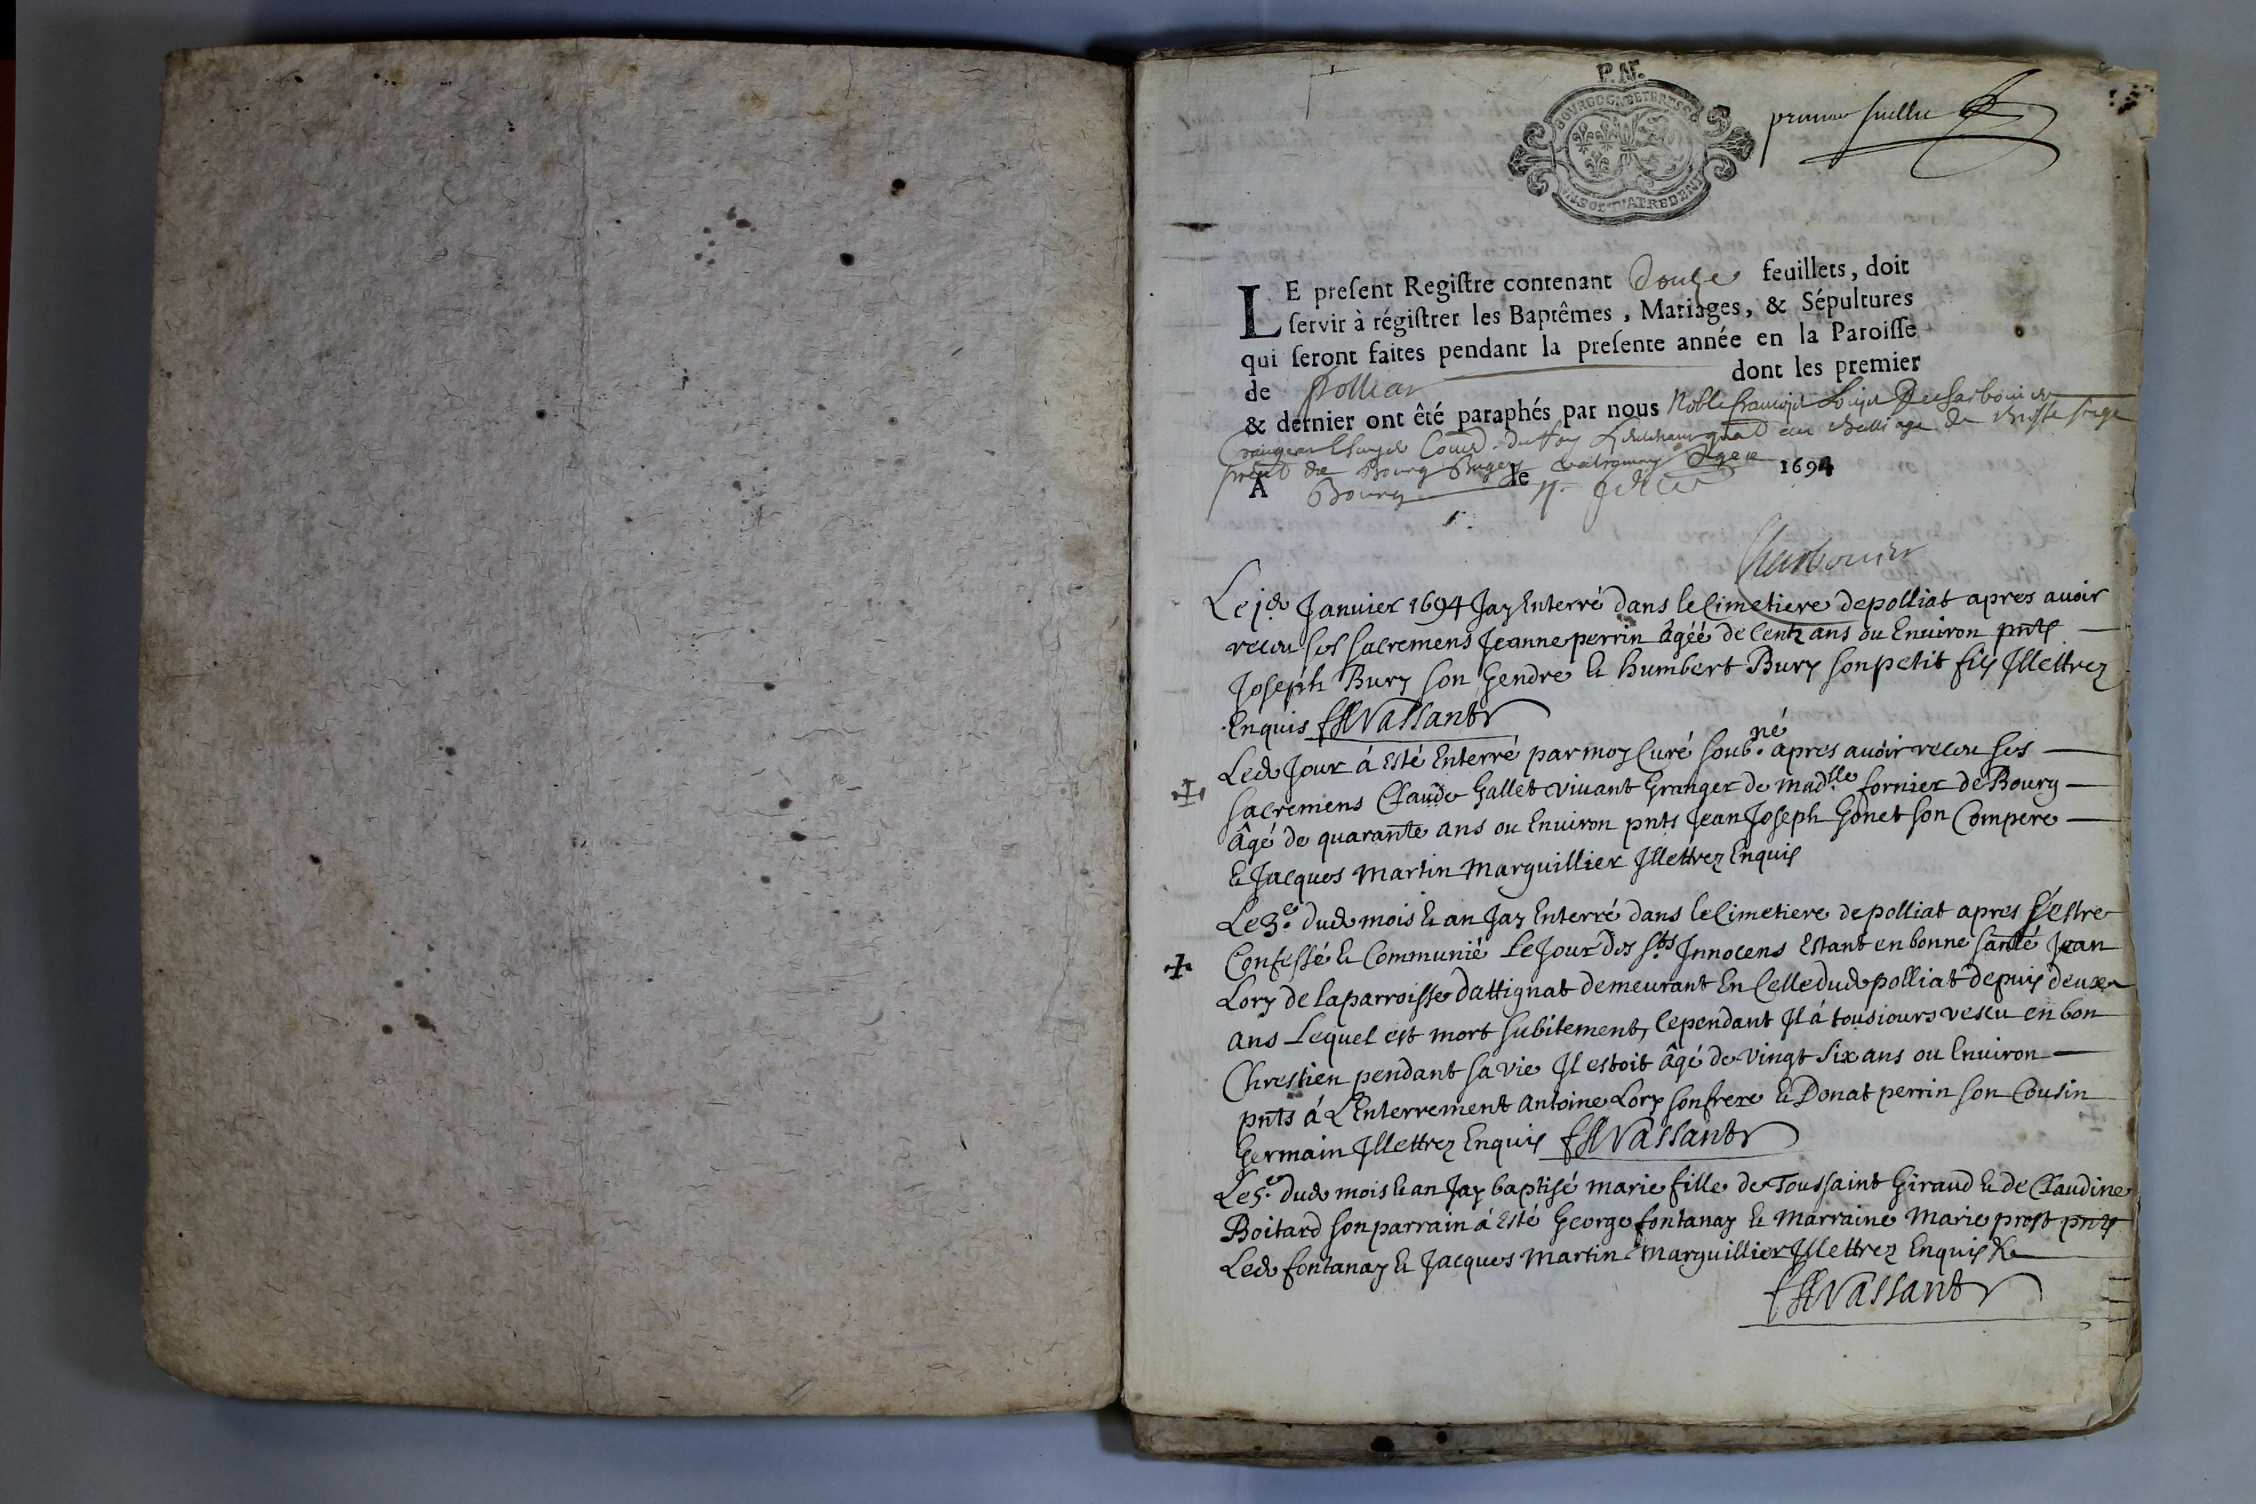 P. Nr.
BOURGOGNE ET BRESSE
premier fuellie
LE present Registre contenant Douze feuillets, doit
servir à régistrer les Baptêmes, Mariages, & Sépultures
qui seront faites pendant la presente année en la Paroisse
de Polliat dont les premier
& dernier ont êté paraphés par nous Noble françois Louys Decharbonier
Crangeac Couer du Roy au Balliage de Bresse siege
de Bourg
A Bourg le 1694
Charbonier
Le jer Janvier 1694 Jay Enterré dans le Cimetiere de polliat apres auoir
receu ses sacremens Jeanne perrin âgéé de Cent ans ou Enuiron pnts
Joseph Bury son Gendre & humbert Bury son petit fils Jllettrez
Enquis f A Vassant
Led Jour á Esté Enterré par moy Curé soub.né apres auoir receu ses
sacremens Claude Gallet viuant Granger de mad.lle fornier de Bourg
âgé de quarante ans ou Enuiron pnts Jean Joseph Gonet son Compere
& Jacques Martin Marguillier Jllettrez Enquis
Le 3.e dud mois & an Jay Enterré dans le Cimetiere de polliat apres s'estre
Confessé & Communié Le Jour des sts Jnnocens Estant en bonne santé Jean
Lory de la parroisse dattignat demeurant En Celle dud polliat depuis deux
ans Lequel est mort subitement, Cependant Jl á tousiours vescu en bon
Chrestien pendant sa vie Jl estoit âgé de vingt six ans ou Enuiron
pnts á L'Enterrement Antoine Lory son frere & Donat perrin son Cousin
Germain Jllettrez Enquis f A Vassant
Le 5.e dud mois & an Jay baptisé marie fille de Toussaint Giraud & de Claudine
Boitard son parrain á Esté George fontanay & Marraine Marie prost pnts
Led fontanay & Jacques Martin Marguillier Jllettrez Enquis &c
f A Vassant